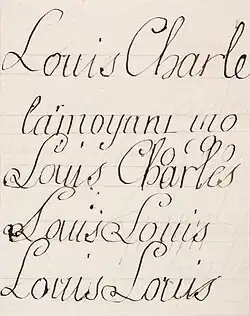 Louis Charle
Louis Charles
Louis Louis
Louis Louis